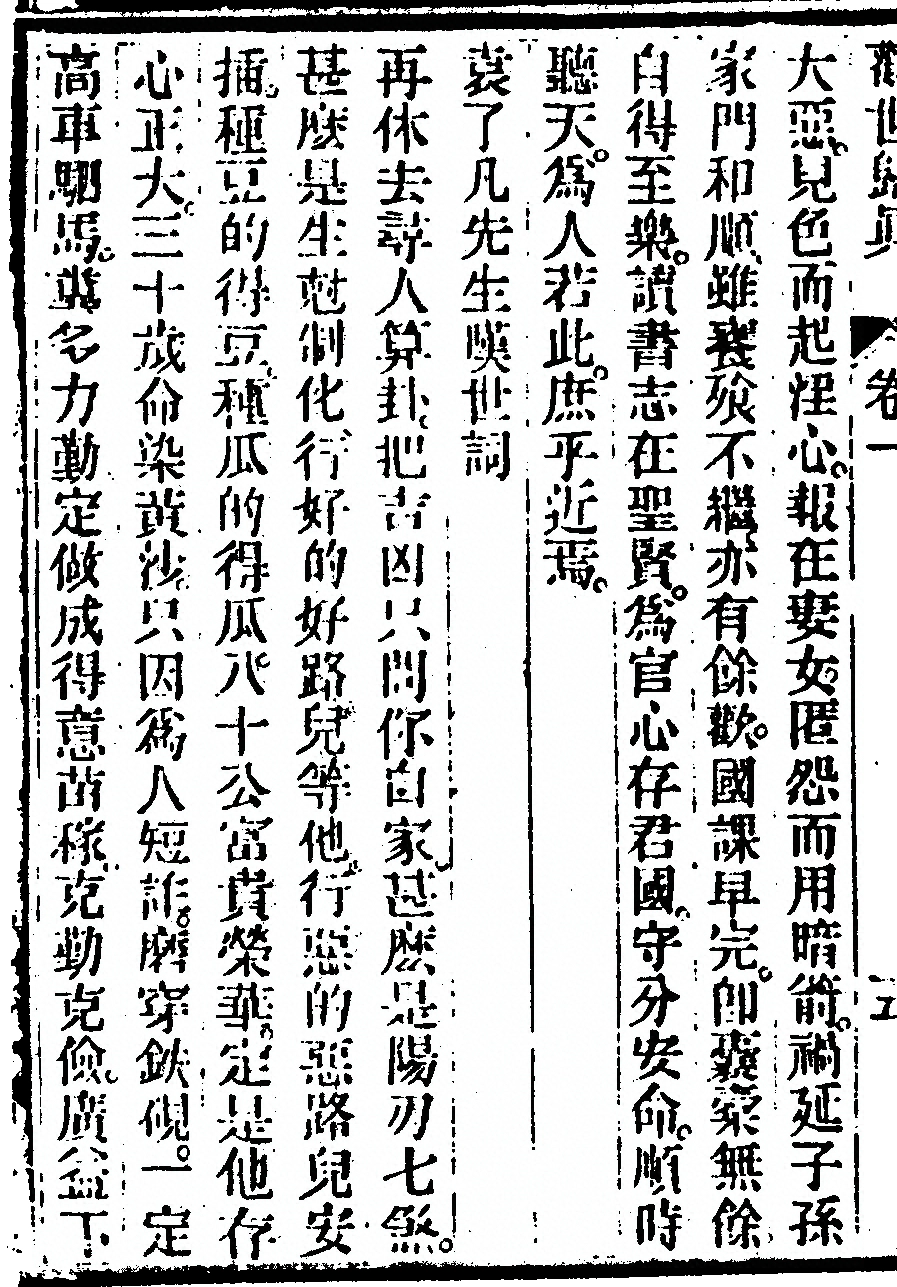 勸世歸真 卷一 五
大惡。見色而起淫心。報在妻女。匿怨而用暗箭。禍延子孫
家門和順。雖饔飱不繼。亦有餘歡。國課早完。卽囊槖無餘
自得至樂。讀書志在聖賢。爲官心存君國。守分安命。順時
聽天。爲人若此。庶乎近焉。
袁了凡先生嘆世詞
再休去尋人算卦。把吉凶只問你自家。甚麽是陽刃七煞。
甚麽是生尅制化。行好的好路兒等他。行惡的惡路兒安
插。種豆的得豆。種瓜的得瓜。八十公富貴榮華。定是他存
心正大。三十歲命染黃沙。只因爲人短詐。磨穿鉄硯。一定
高車駟馬。糞多力勤。定做成得意苗稼。克勤克儉。廣益下